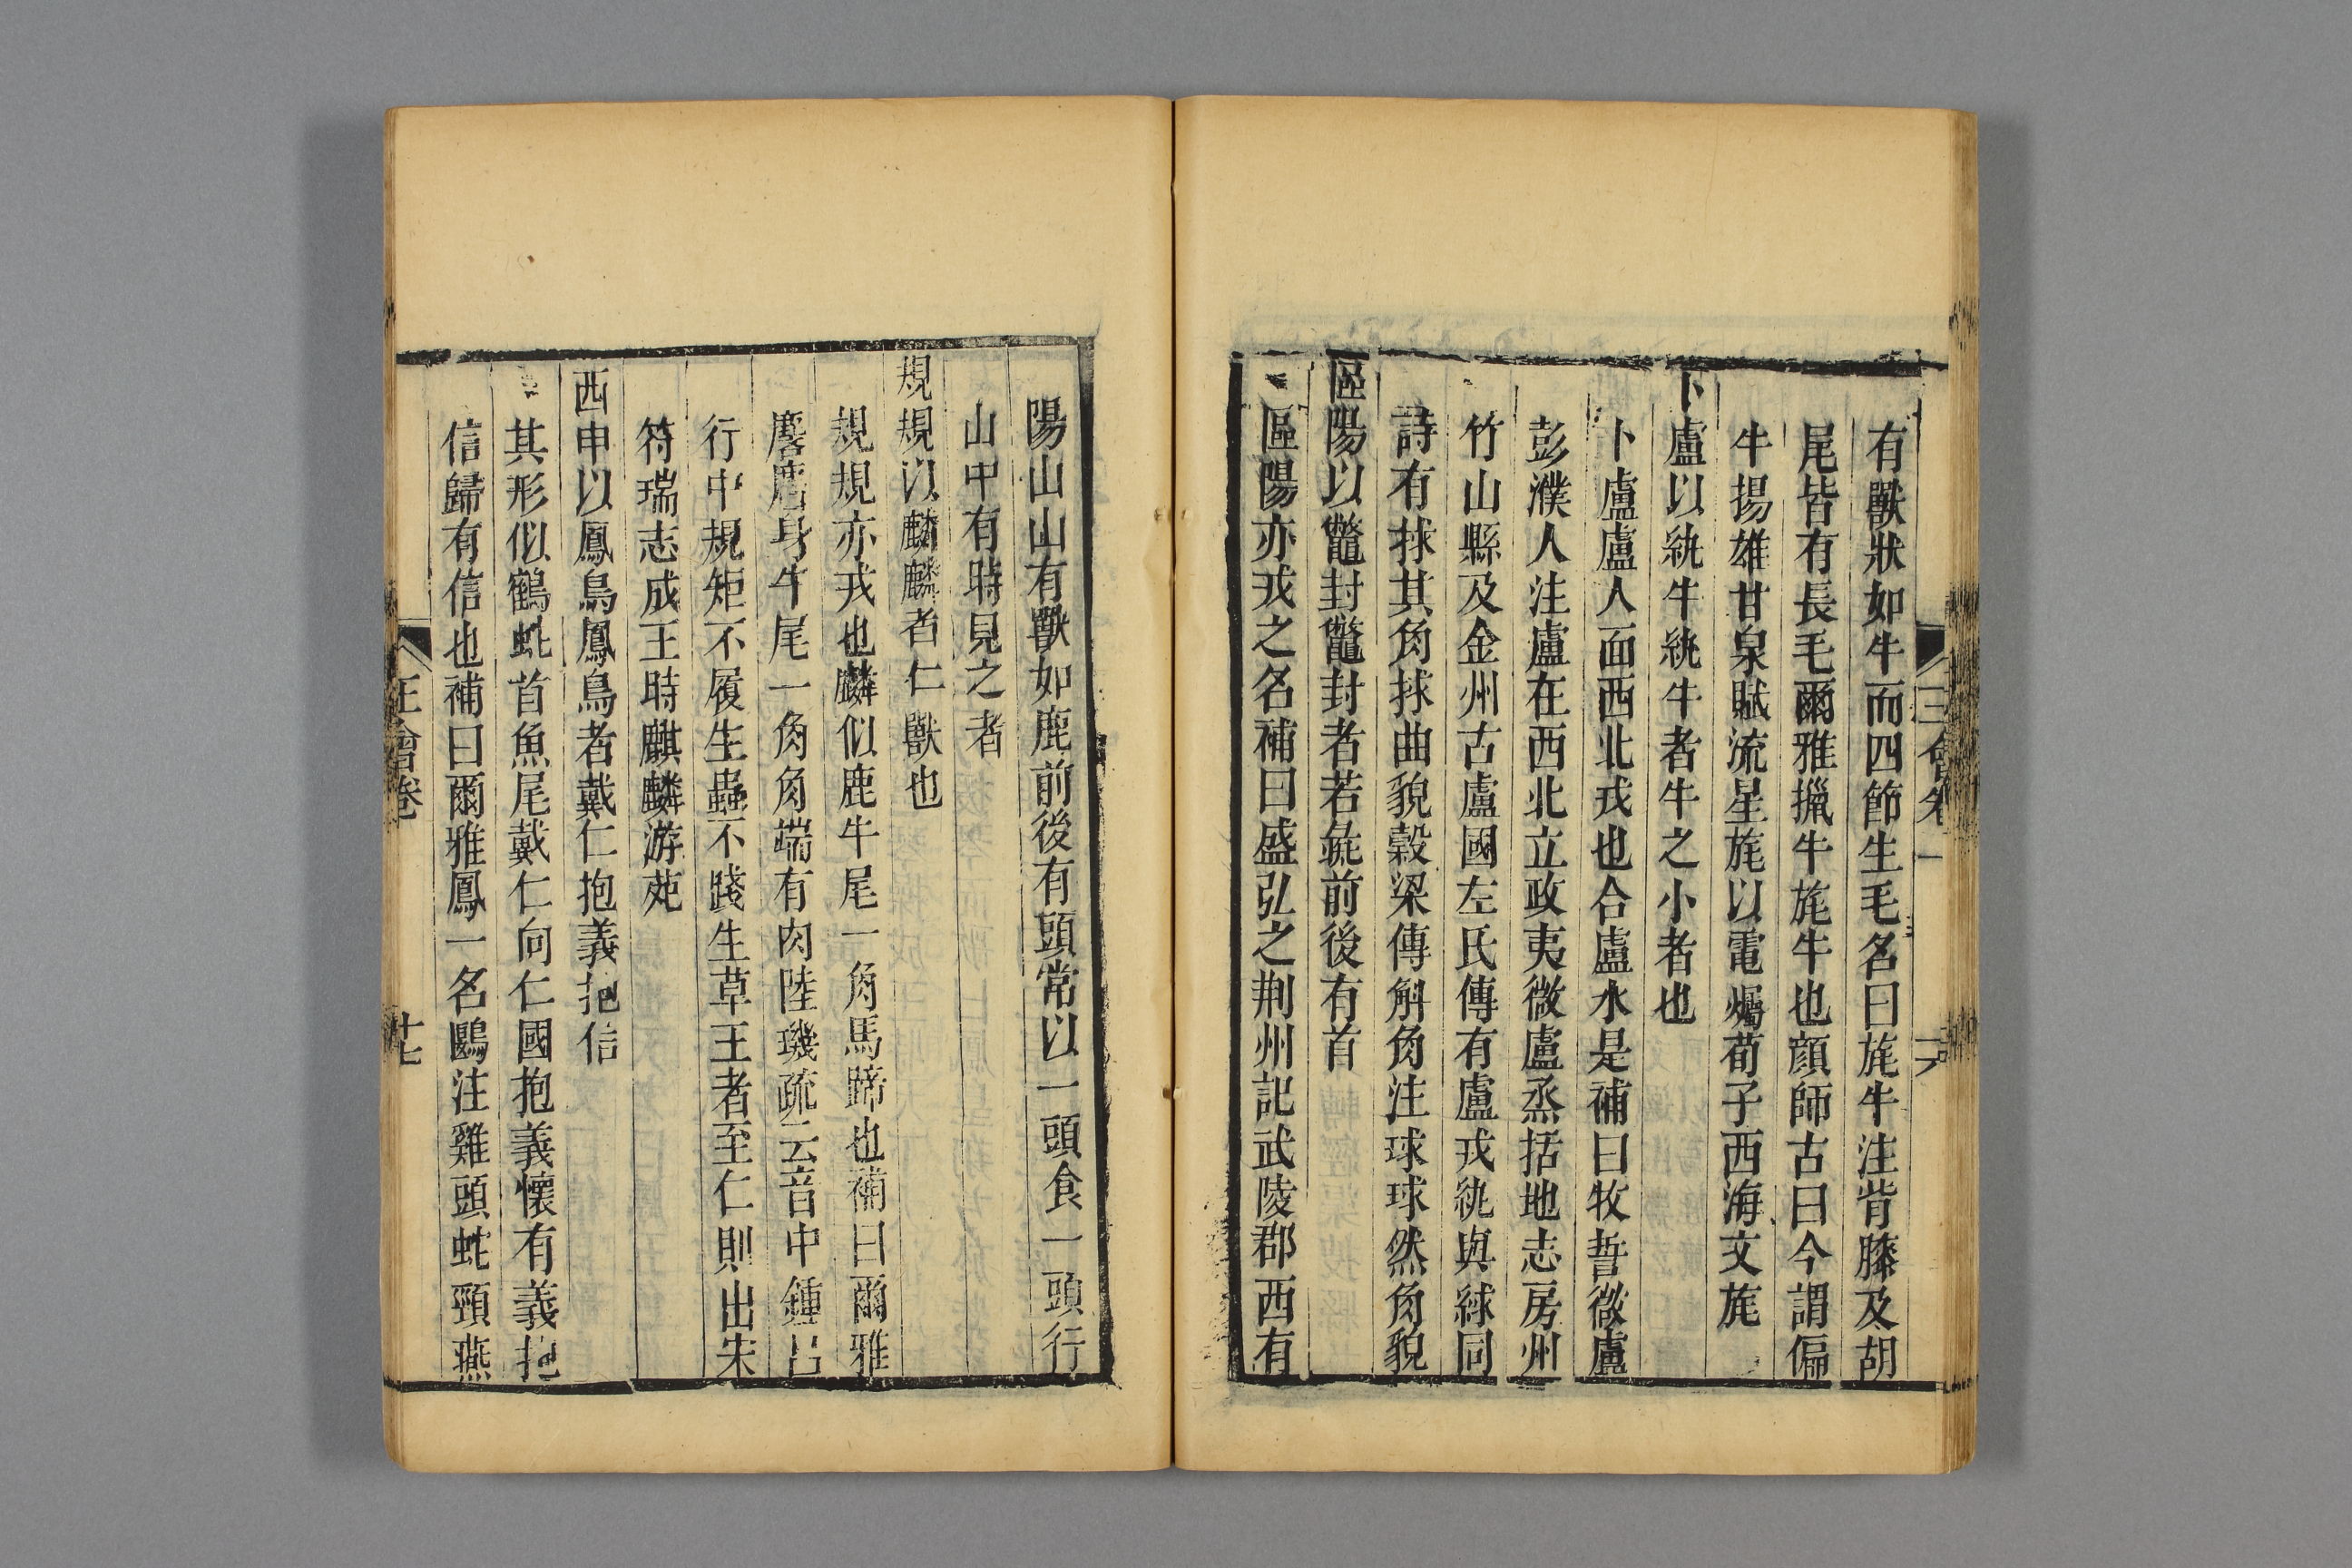 有獸狀如牛而四節生毛名曰旄牛注背膝及胡
尾皆有長毛爾雅犣牛旄牛也顔師古曰今謂偏
牛揚雄甘泉賦流星旄以電爥荀子西海文旄
卜盧以紈牛紈牛者牛之小者也
卜盧盧人面西北戎也合盧水是補曰牧誓微盧
彭濮人注盧在西北立政夷微盧烝括地志房州
竹山縣及金州古盧國左氏傳有盧戎紈與絿同
詩有捄其角捄曲貌穀梁傳斛角注球球然角貌
區陽以鼈封鼈封者若彘前後有首
區陽亦戎之名補曰盛弘之荆州記武陵郡西有
王會卷一
十六
陽山山有獸如鹿前後有頭常以一頭食一頭行
山中有時見之者
規規以麟麟者仁獸也
規規亦戎也麟似鹿牛尾一角馬蹄也補曰爾雅
麐麕身牛尾一角角端有肉陸璣疏云音中鍾呂
行中規矩不履生蟲不踐生草王者至仁則出宋
符瑞志成王時麒麟游苑
西申以鳳鳥鳳鳥者戴仁抱義抱信
其形似鶴蛇首魚尾戴仁向仁國抱義懷有義抱
信歸有信也補曰爾雅鳳一名鶠注雞頭蛇頸燕
王會卷
十七